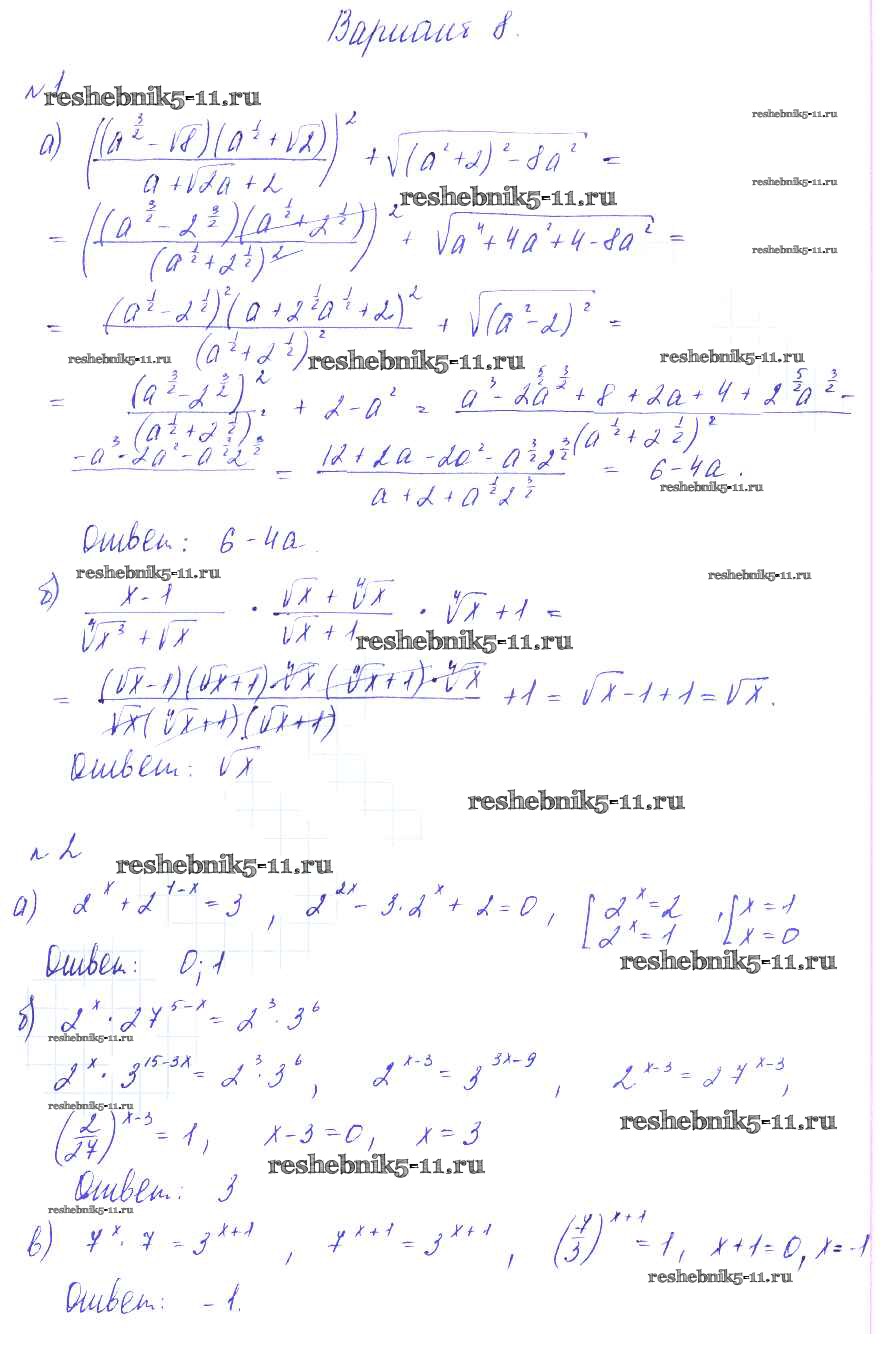 Вариант 8.
№1
reshebnik5-11.ru
reshebnik5-11.ru
а) (((a^(3/2) - √8)(a^(1/2) + √2))/(a + √(2a) + 2))² + √((a² + 2)² - 8a²) =
reshebnik5-11.ru
reshebnik5-11.ru
= (((a^(3/2) - 2^(3/2))(a^(1/2) + 2^(1/2)))/(a^(1/2) + 2^(1/2))²)² + √(a⁴ + 4a² + 4 - 8a²) =
reshebnik5-11.ru
= ((a^(1/2) - 2^(1/2))²(a + 2^(1/2)a^(1/2) + 2)²)/(a^(1/2) + 2^(1/2))² + √((a² - 2)²) =
reshebnik5-11.ru reshebnik5-11.ru reshebnik5-11.ru
= (a^(3/2) - 2^(3/2))²/(a^(1/2) + 2^(1/2))² + 2 - a² =
= 6 - 4a.
reshebnik5-11.ru
Ответ: 6 - 4a.
reshebnik5-11.ru reshebnik5-11.ru
б) (x - 1)/(⁴√x³ + √x) · (√x + ⁴√x)/(√x + 1) · ⁴√x + 1 =
reshebnik5-11.ru
= ((√x - 1)(√x + 1)·⁴√x(⁴√x + 1)·⁴√x)/(√x(⁴√x + 1)(√x + 1)) + 1 = √x - 1 + 1 = √x.
Ответ: √x
reshebnik5-11.ru
№2
reshebnik5-11.ru
а) 2^x + 2^(1-x) = 3, 2^(2x) - 3·2^x + 2 = 0, [2^x = 2 2^x = 1, [x = 1 x = 0
Ответ: 0; 1
reshebnik5-11.ru
б) 2^x · 27^(5-x) = 2³ · 3⁶
reshebnik5-11.ru
2^x · 3^(15-3x) = 2³ · 3⁶, 2^(x-3) = 3^(3x-9), 2^(x-3) = 27^(x-3),
reshebnik5-11.ru reshebnik5-11.ru
(2/27)^(x-3) = 1, x - 3 = 0, x = 3
reshebnik5-11.ru
Ответ: 3
reshebnik5-11.ru
в) 7^x · 7 = 3^(x+1), 7^(x+1) = 3^(x+1), (7/3)^(x+1) = 1, x + 1 = 0, x = -1
reshebnik5-11.ru
Ответ: -1.